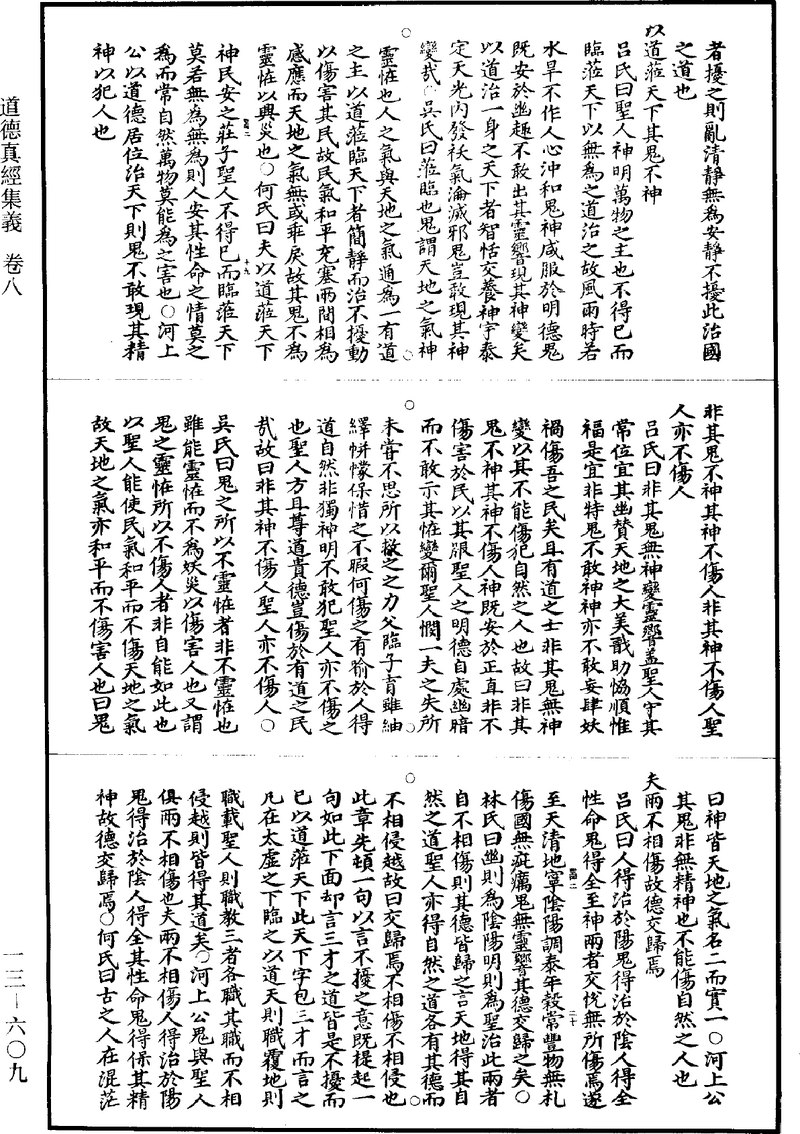 者擾之則亂清靜無為安靜不擾此治國
之道也
以道莅天下其鬼不神
呂氏曰聖人神明萬物之主也不得已而
臨莅天下以無為之道治之故風雨時若
水旱不作人心沖和鬼神咸服於明德鬼
既安於幽趣不敢出其靈響現其神變矣
以道治一身之天下者智恬交養神宇泰
定天光內發祅氣淪滅邪鬼豈敢現其神
變哉○吳氏曰莅臨也鬼謂天地之氣神
靈怪也人之氣與天地之氣通為一有道
之主以道莅臨天下者簡靜而治不擾動
以傷害其民故民氣和平充塞兩間相為
感應而天地之氣無或乖戾故其鬼不為
靈怪以興災也○何氏曰夫以道莅天下
神民安之莊子聖人不得已而臨莅天下
莫若無為無為則人安其性命之情莫之
為而常自然萬物莫能為之害也○河上
公以道德居位治天下則鬼不敢現其精
神以犯人也
非其鬼不神其神不傷人非其神不傷人聖
人亦不傷人
呂氏曰非其鬼無神變靈響蓋聖人守其
常位宜其幽贊天地之大美戩助恊順惟
福是宜非特鬼不敢神神亦不敢妄肆妖
禍傷吾之民矣且有道之士非其鬼無神
變以其不能傷犯自然之人也故曰非其
鬼不神其神不傷人神既安於正直非不
傷害於民以其服聖人之明德自處幽暗
而不敢示其怪變爾聖人憫一夫之失所
未甞不思所以救之之力父臨子育雖紬
繹帡幪保惜之不暇何傷之有夫於人得
道自然非獨神明不敢犯聖人亦不傷之
也聖人方且尊道貴德豈傷於有道之民
哉故曰非其神不傷人聖人亦不傷人○
吳氏曰鬼之所以不靈怪者非不靈怪也
雖能靈怪而不為妖災以傷害人也又謂
鬼之靈怪所以不傷人者非自能如此也
以聖人能使民氣和平而不傷天地之氣
故天地之氣亦和平而不傷害人也曰鬼
曰神皆天地之氣名二而實一○河上公
其鬼非無精神也不能傷自然之人也
夫兩不相傷故德交歸焉
呂氏曰人得治於陽鬼得治於陰人得全
性命鬼得全至神兩者交悅無所傷焉遂
至天清地寧陰陽調泰年穀常豐物無札
傷國無疵癘鬼無靈響其德交歸之矣○
林氏曰幽則為陰陽明則為聖治此兩者
自不相傷則其德皆歸之言天地得其自
然之道聖人亦得自然之道各有其德而
不相侵越故曰交歸焉不相傷不相侵也
此章先頓一句以言不擾之意既提起一
句如此下面却言三才之道皆是不擾而
已以道莅天下此天下字包三才而言之
凡在太虛之下臨之以道天則職覆地則
職載聖人則職教三者各職其職而不相
侵越則皆得其道矣○河上公鬼與聖人
俱兩不相傷也夫兩不相傷人得治於陽
鬼得治於陰人得全其性命鬼得保其精
神故德交歸焉○何氏曰古之人在混茫
道德真經集義　卷八
一三—六〇九